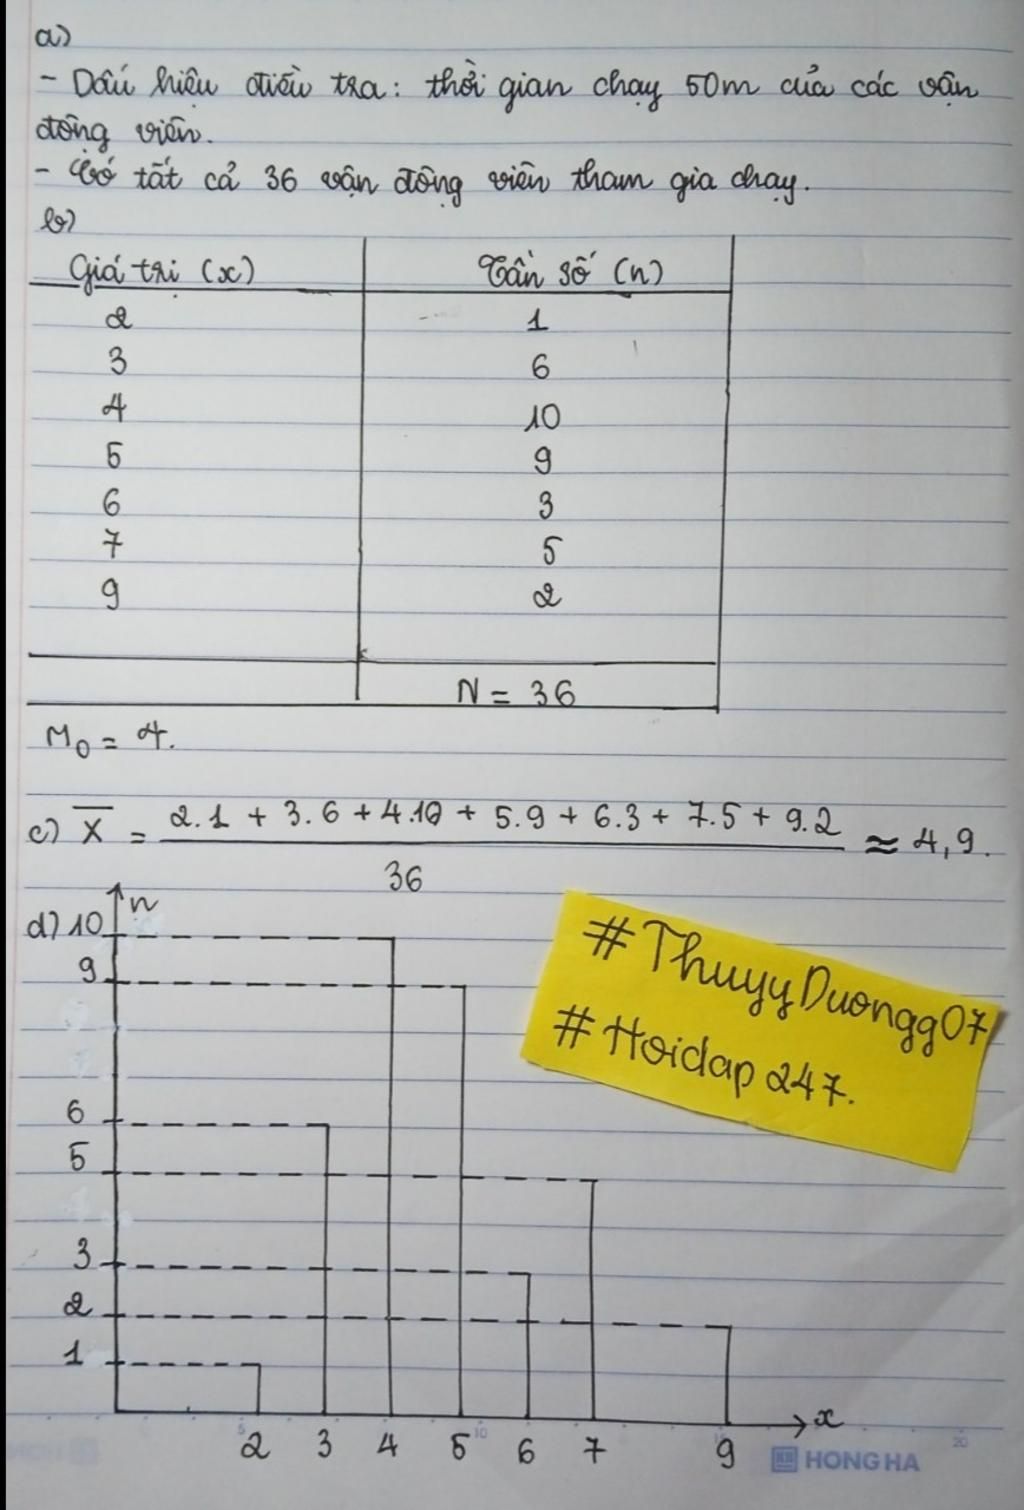 a)
- Dấu hiệu điều tra: thời gian chạy 50m của các vận
động viên.
- Có tất cả 36 vận động viên tham gia chạy.
b)
Giá trị (x) Tần số (n)
2 1
3 6
4 10
5 9
6 3
7 5
9 2
N = 36
M₀ = 4.
c) X̅ = (2.1 + 3.6 + 4.10 + 5.9 + 6.3 + 7.5 + 9.2) / 36 ≈ 4,9.
d) n
10
9
6
5
3
2
1
2 3 4 5 6 7 9 x
#ThuyyDuongg07
#Hoidap247.
HONG HA